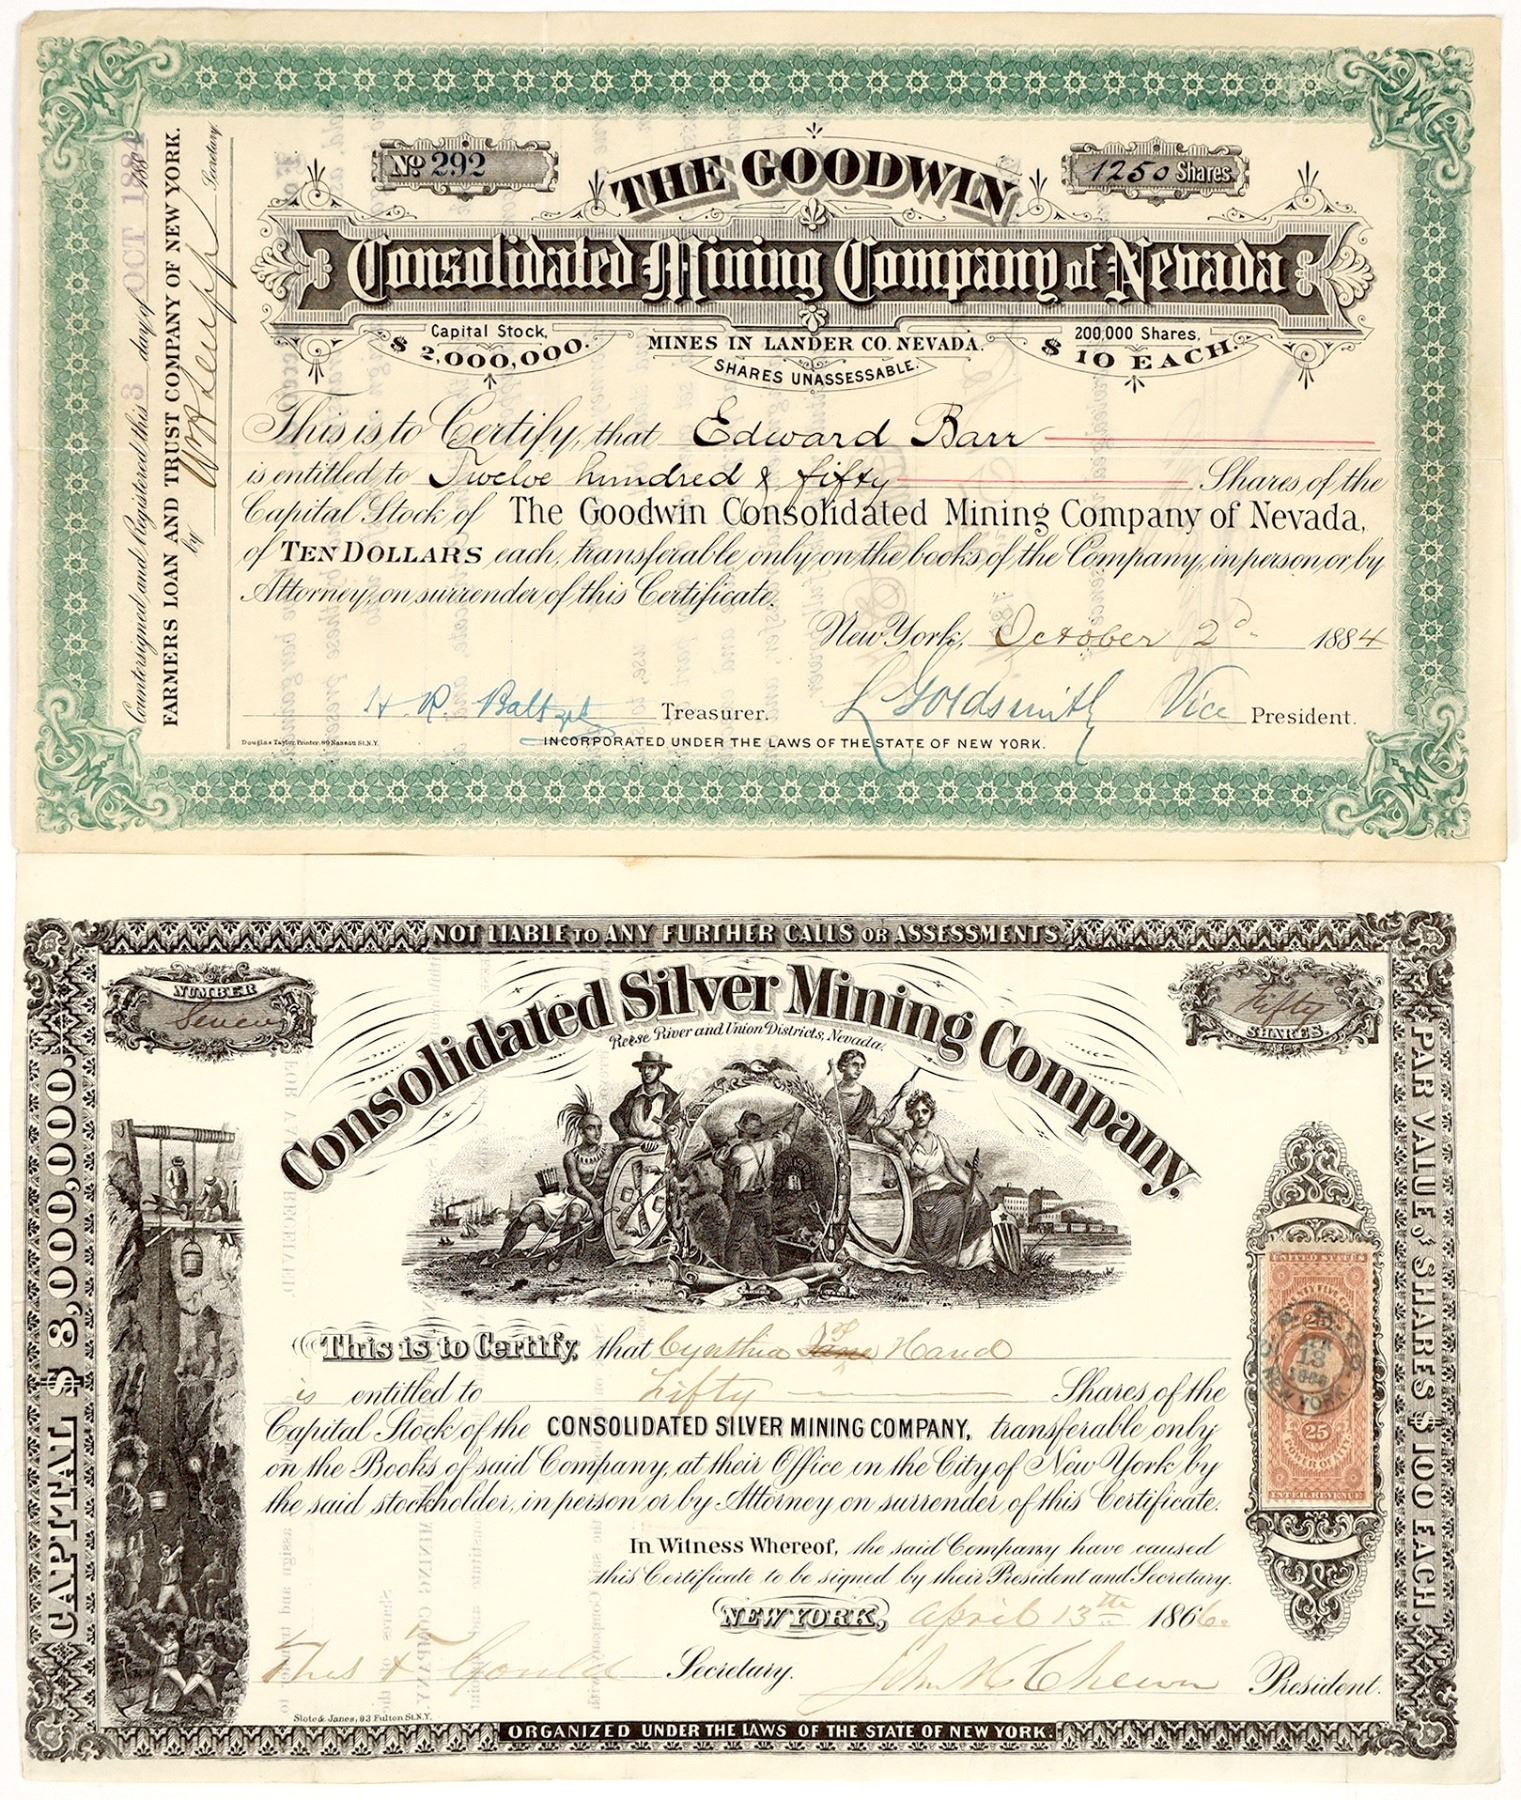 Nº 292
THE GOODWIN
1250 Shares
Consolidated Mining Company of Nevada
Capital Stock,
$ 2,000,000.
MINES IN LANDER CO. NEVADA.
SHARES UNASSESSABLE.
200,000 Shares,
$ 10 EACH.
This is to Certify, that Edward Barr
is entitled to Twelve hundred & fifty Shares of the
Capital Stock of The Goodwin Consolidated Mining Company of Nevada,
of TEN DOLLARS each, transferable only on the books of the Company, in person or by
Attorney, on surrender of this Certificate.
New York, October 2d 1884
H. R. Baltzel Treasurer.
L Goldsmith Vice President.
Douglas Taylor, Printer, 89 Nassau St. N.Y.
INCORPORATED UNDER THE LAWS OF THE STATE OF NEW YORK.
Countersigned and Registered, this 3 day of OCT 1884 188
FARMERS LOAN AND TRUST COMPANY OF NEW YORK.
by Secretary
NOT LIABLE TO ANY FURTHER CALLS OR ASSESSMENTS
NUMBER
Seven
Fifty
SHARES.
Consolidated Silver Mining Company,
Reese River and Union Districts, Nevada.
CAPITAL $ 8,000,000.
PAR VALUE of SHARES $ 100 EACH.
This is to Certify, that Cynthia Hand
is entitled to Fifty Shares of the
Capital Stock of the CONSOLIDATED SILVER MINING COMPANY, transferable only
on the Books of said Company, at their Office in the City of New York by
the said stockholder, in person or by Attorney on surrender of this Certificate.
In Witness Whereof, the said Company have caused
this Certificate to be signed by their President and Secretary.
NEW YORK, April 13th 1866.
Thos F Gould Secretary.
John H Cheever President.
Slote & Janes, 93 Fulton St. N.Y.
ORGANIZED UNDER THE LAWS OF THE STATE OF NEW YORK.
UNITED STATES
25
NEW YORK
25
POWER OF ATT'Y
INTER. REVENUE